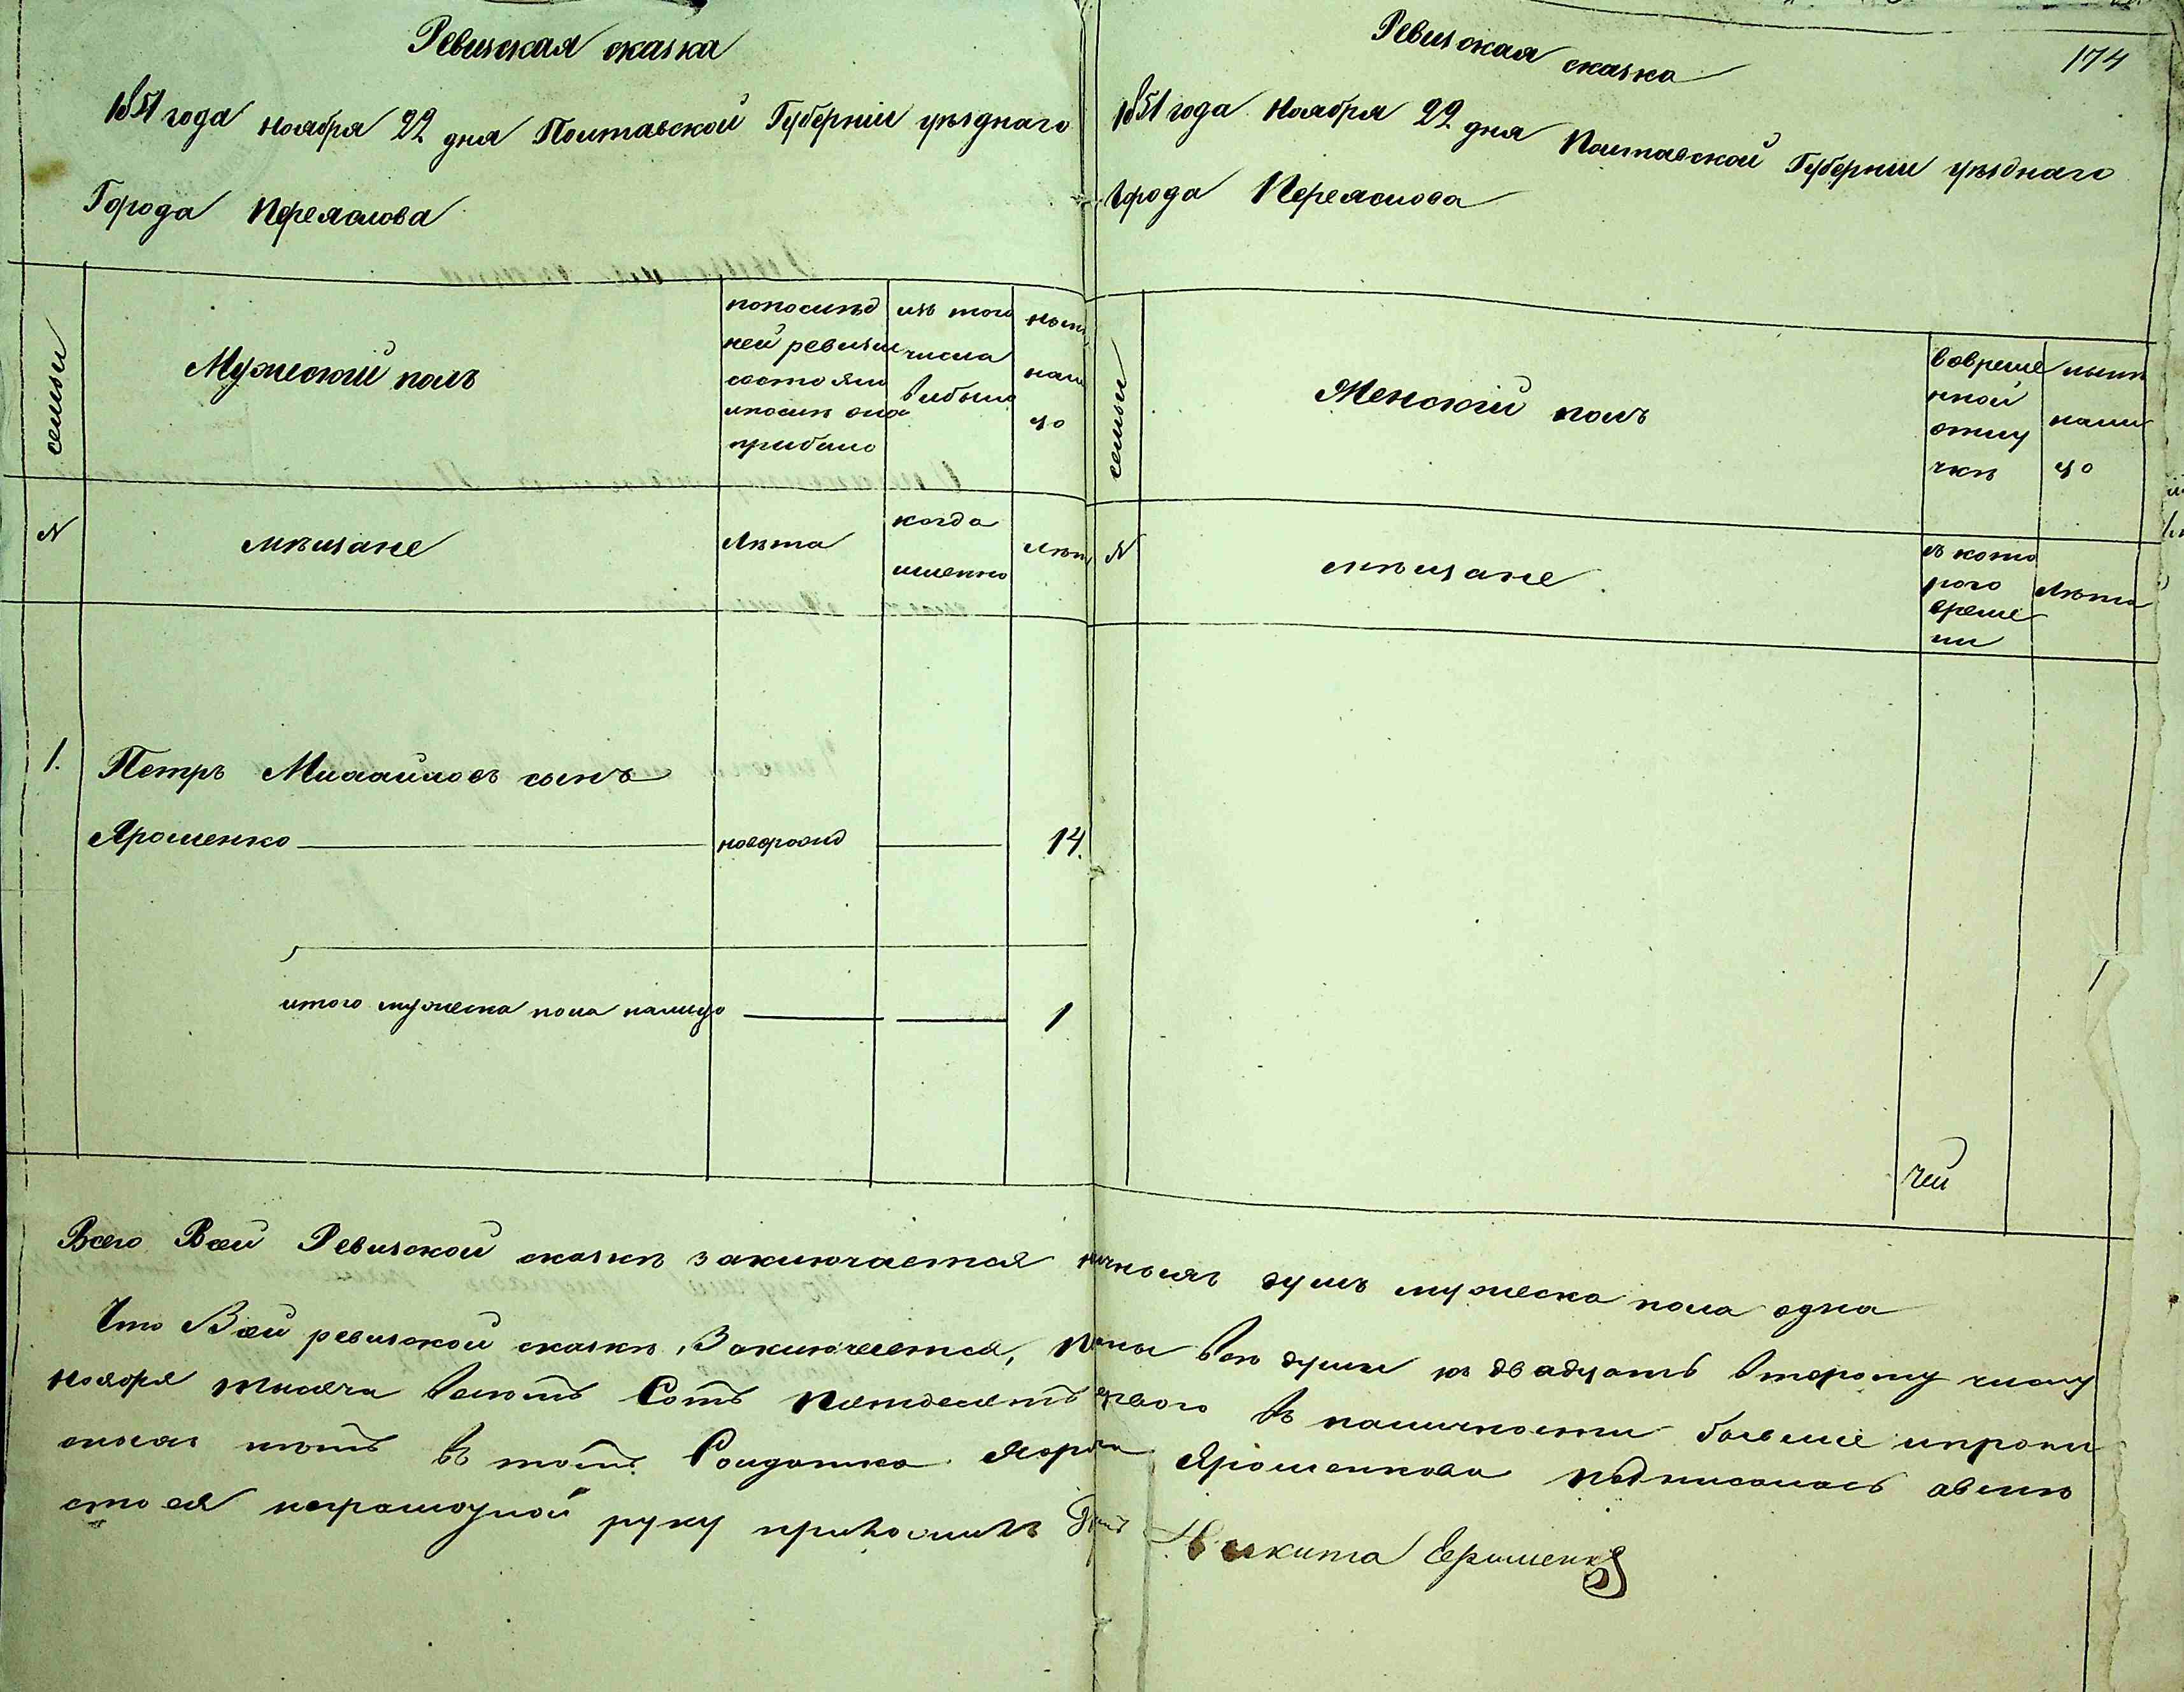 Ревизская сказка
1851 года ноября 22 дня Полтавской Губерніи уѣзднаго
Города Переяслова
семьи
Мужеский полъ
попослѣд
ней ревизіи
состояло
ипослѣ оной
прибыло
изъ того
числа
выбыло
нынѣ
нали
цо
N
мѣщане
Лѣта
когда
именно
Лѣта
1.
Петръ Михайловъ сынъ
Ярошенко
новорожд
14.
итого мужеска пола налицо
1
174
Ревизская сказка
1851 года Ноября 22 дня Полтавской Губерніи уѣзднаго
города Переяслова
семьи
Женский полъ
вовреме
нной
отлу
чкѣ
нынѣ
нали
цо
N
мѣщане
съ кото
рого
време
ни
Лѣта
чей
Всего Всей Ревизской сказкѣ заключается наличныхъ душъ мужеска пола одна
Что Всей ревизской сказкѣ, Заключается, всѣ души къ двадцать второму числу
Ноября тысяча восемъ Сотъ Пятдесятъ первого въ наличности больше ипропи
сныхъ нѣтъ въ томъ Солдатка Ярошенкова подписалась авмѣ
сто ея неграмотной руку приложилъ
Никита Ерошенко